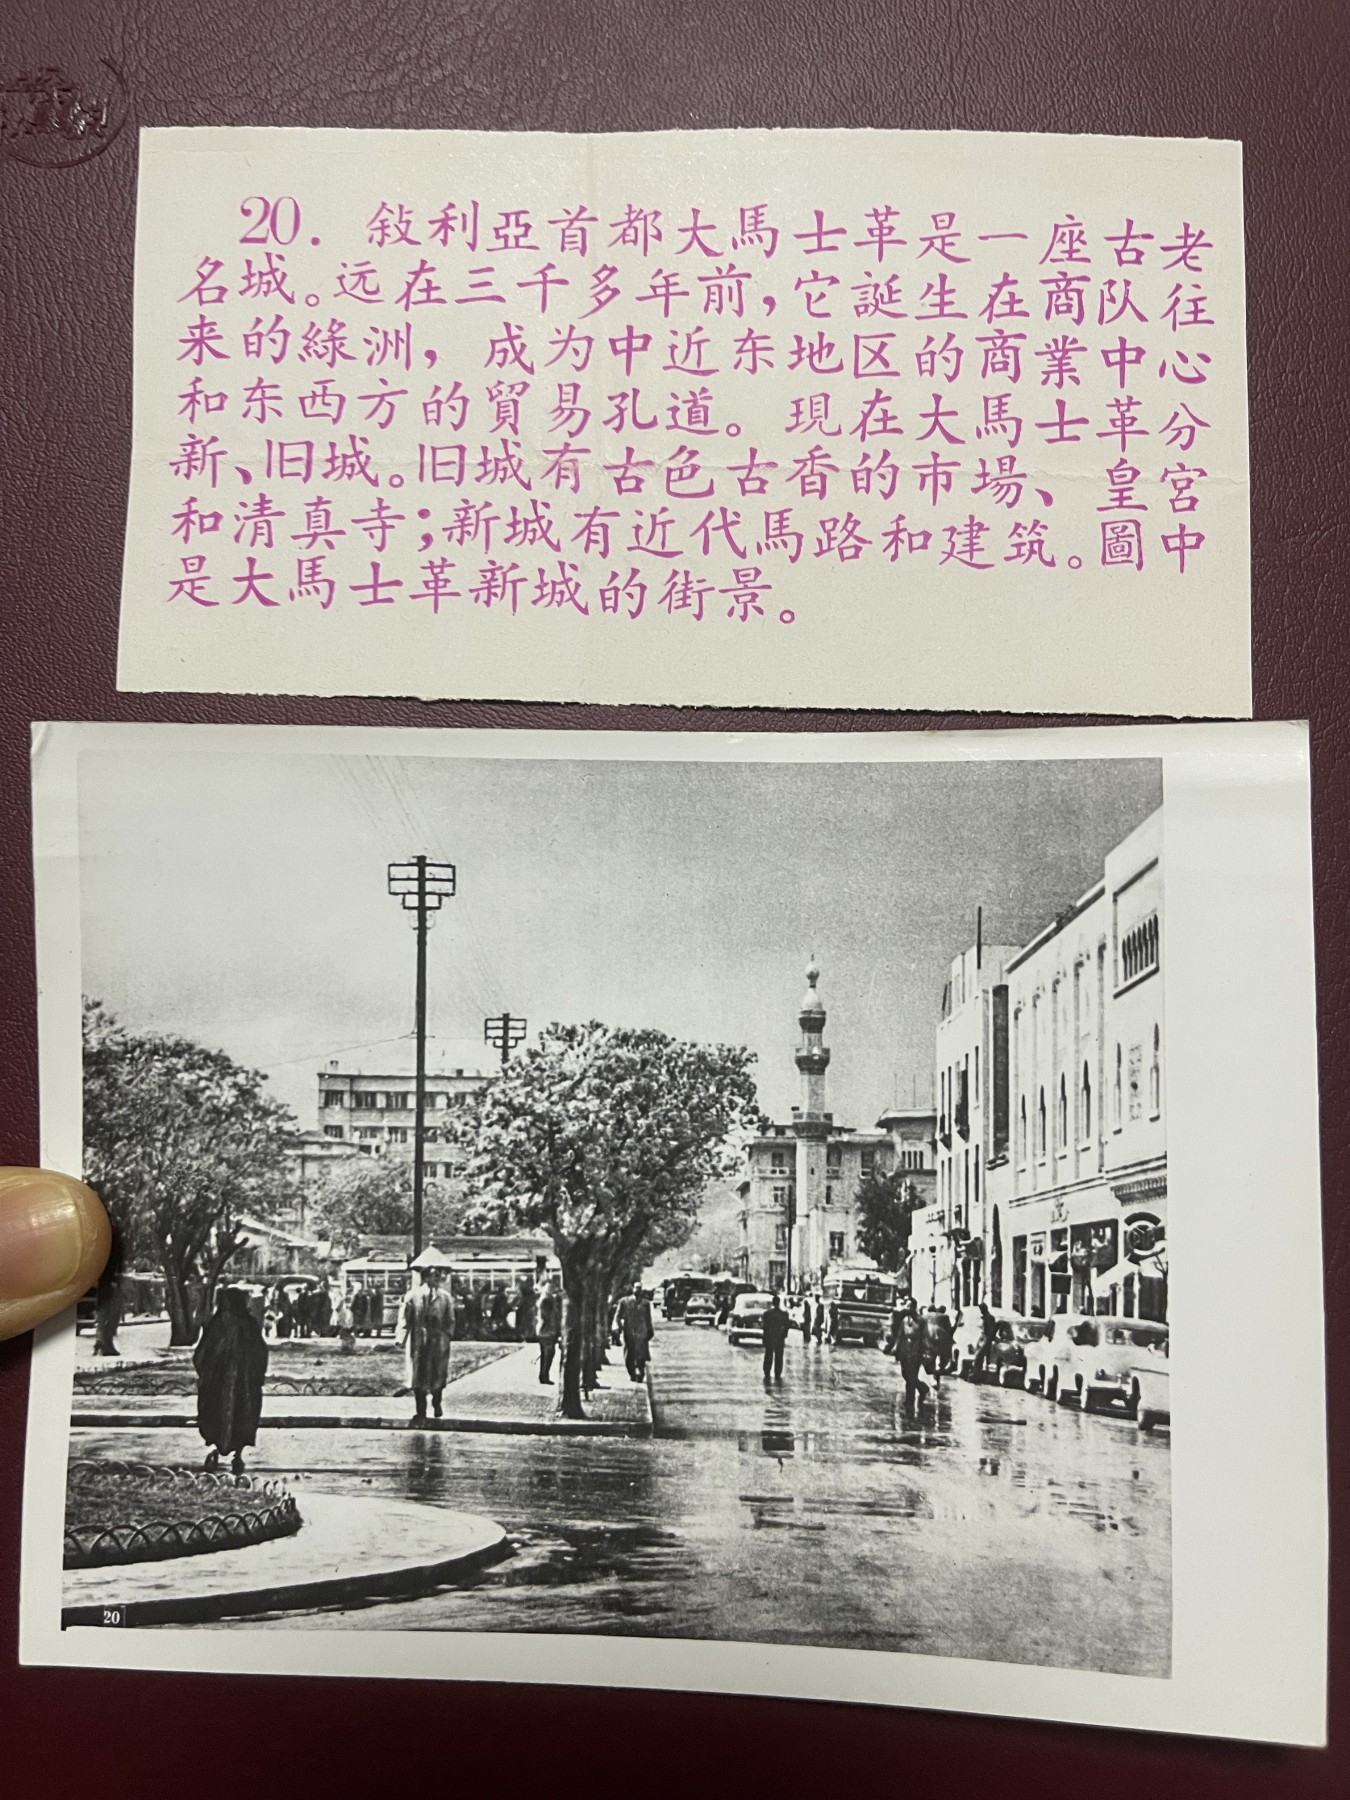 20. 敍利亞首都大馬士革是一座古老
名城。远在三千多年前,它誕生在商队往
来的綠洲,成为中近东地区的商業中心
和东西方的貿易孔道。現在大馬士革分
新、旧城。旧城有古色古香的市場、皇宮
和清真寺;新城有近代馬路和建筑。圖中
是大馬士革新城的街景。
20